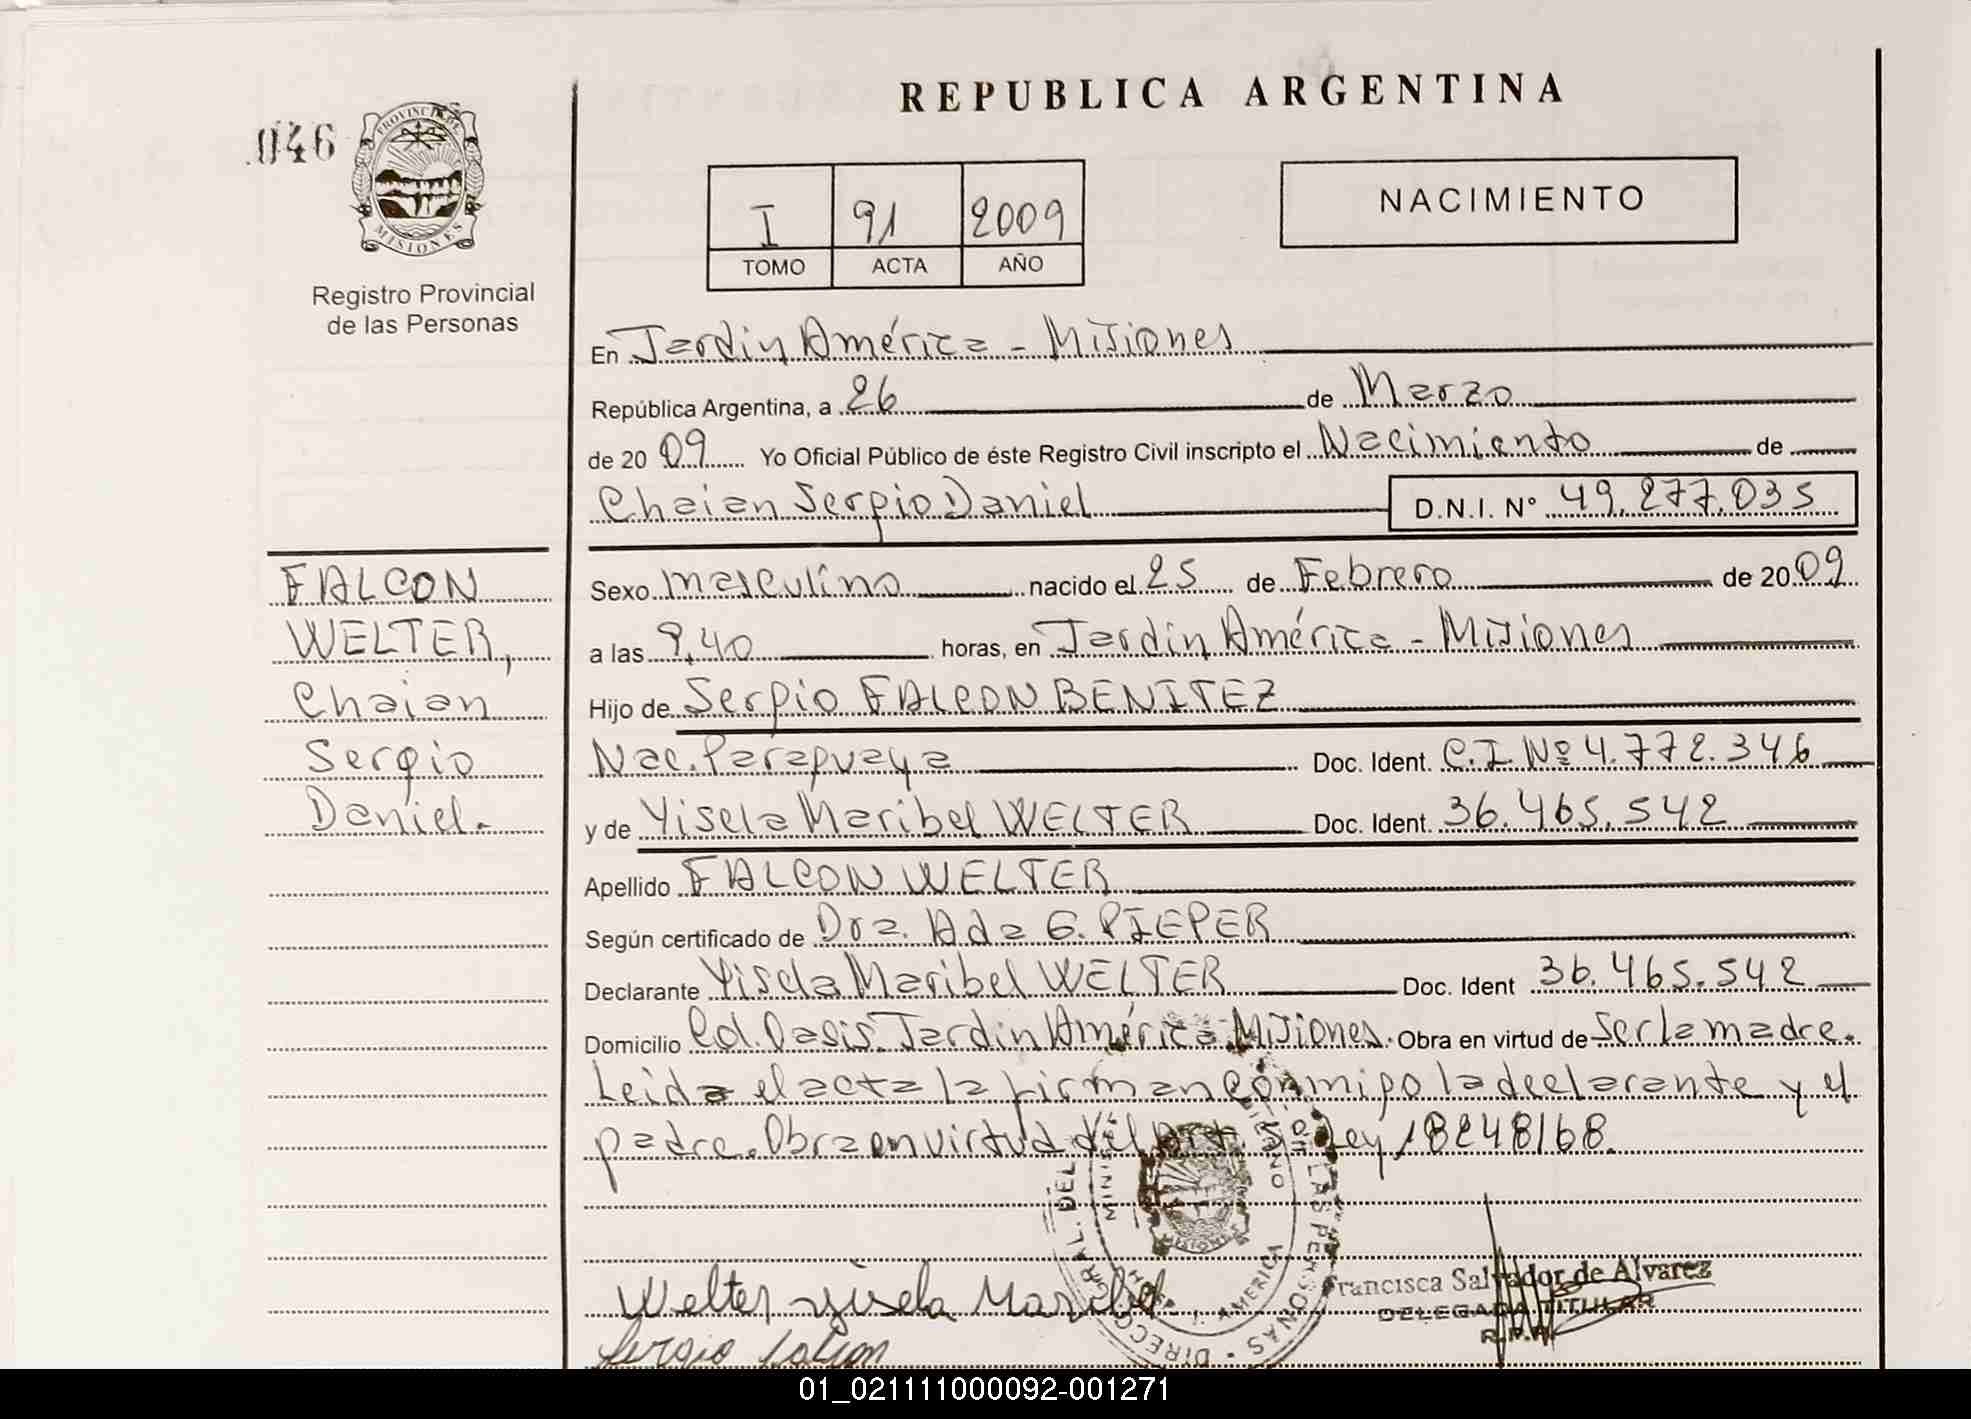 REPUBLICA ARGENTINA
046
PROVINCIA DE
MISIONES
Registro Provincial
de las Personas
I 91 2009
TOMO ACTA AÑO
NACIMIENTO
En Jardin América - Misiones
República Argentina, a 26 de Marzo
de 20 09 Yo Oficial Público de éste Registro Civil inscripto el Nacimiento de
Chaian Sergio Daniel D.N.I. Nº 49.277.035
FALCON
WELTER,
Chaian
Sergio
Daniel.
Sexo masculino nacido el 25 de Febrero de 20 09
a las 9,40 horas, en Jardin América - Misiones
Hijo de Sergio FALCON BENITEZ
Nac. Paraguaya Doc. Ident. C.I. Nº 4.772.346
y de Yisela Maribel WELTER Doc. Ident. 36.465.542
Apellido FALCON WELTER
Según certificado de Dra. Ada G. PIEPER
Declarante Yisela Maribel WELTER Doc. Ident 36.465.542
Domicilio Col. Oasis. Jardin América Misiones. Obra en virtud de ser la madre.
Leida el acta la firman conmigo la declarante y el
padre. Obra en virtud del Ley 18248/68.
Welter Yisela Maribel
Sergio Falcon
Francisca Salvador de Alvarez
DELEGADA TITULAR
R.P.P.
DIRECC GRAL. DEL LAS PERSONAS
J. AMERICA
01_021111000092-001271